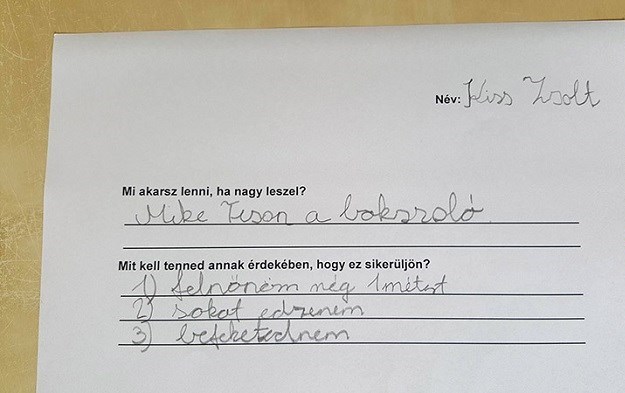 Név: Kiss Zsolt
Mi akarsz lenni, ha nagy leszel?
Mike Teson a bokszoló
Mit kell tenned annak érdekében, hogy ez sikerüljön?
1) felnőnöm még 1métert
2) sokat edzenem
3) befeketednem